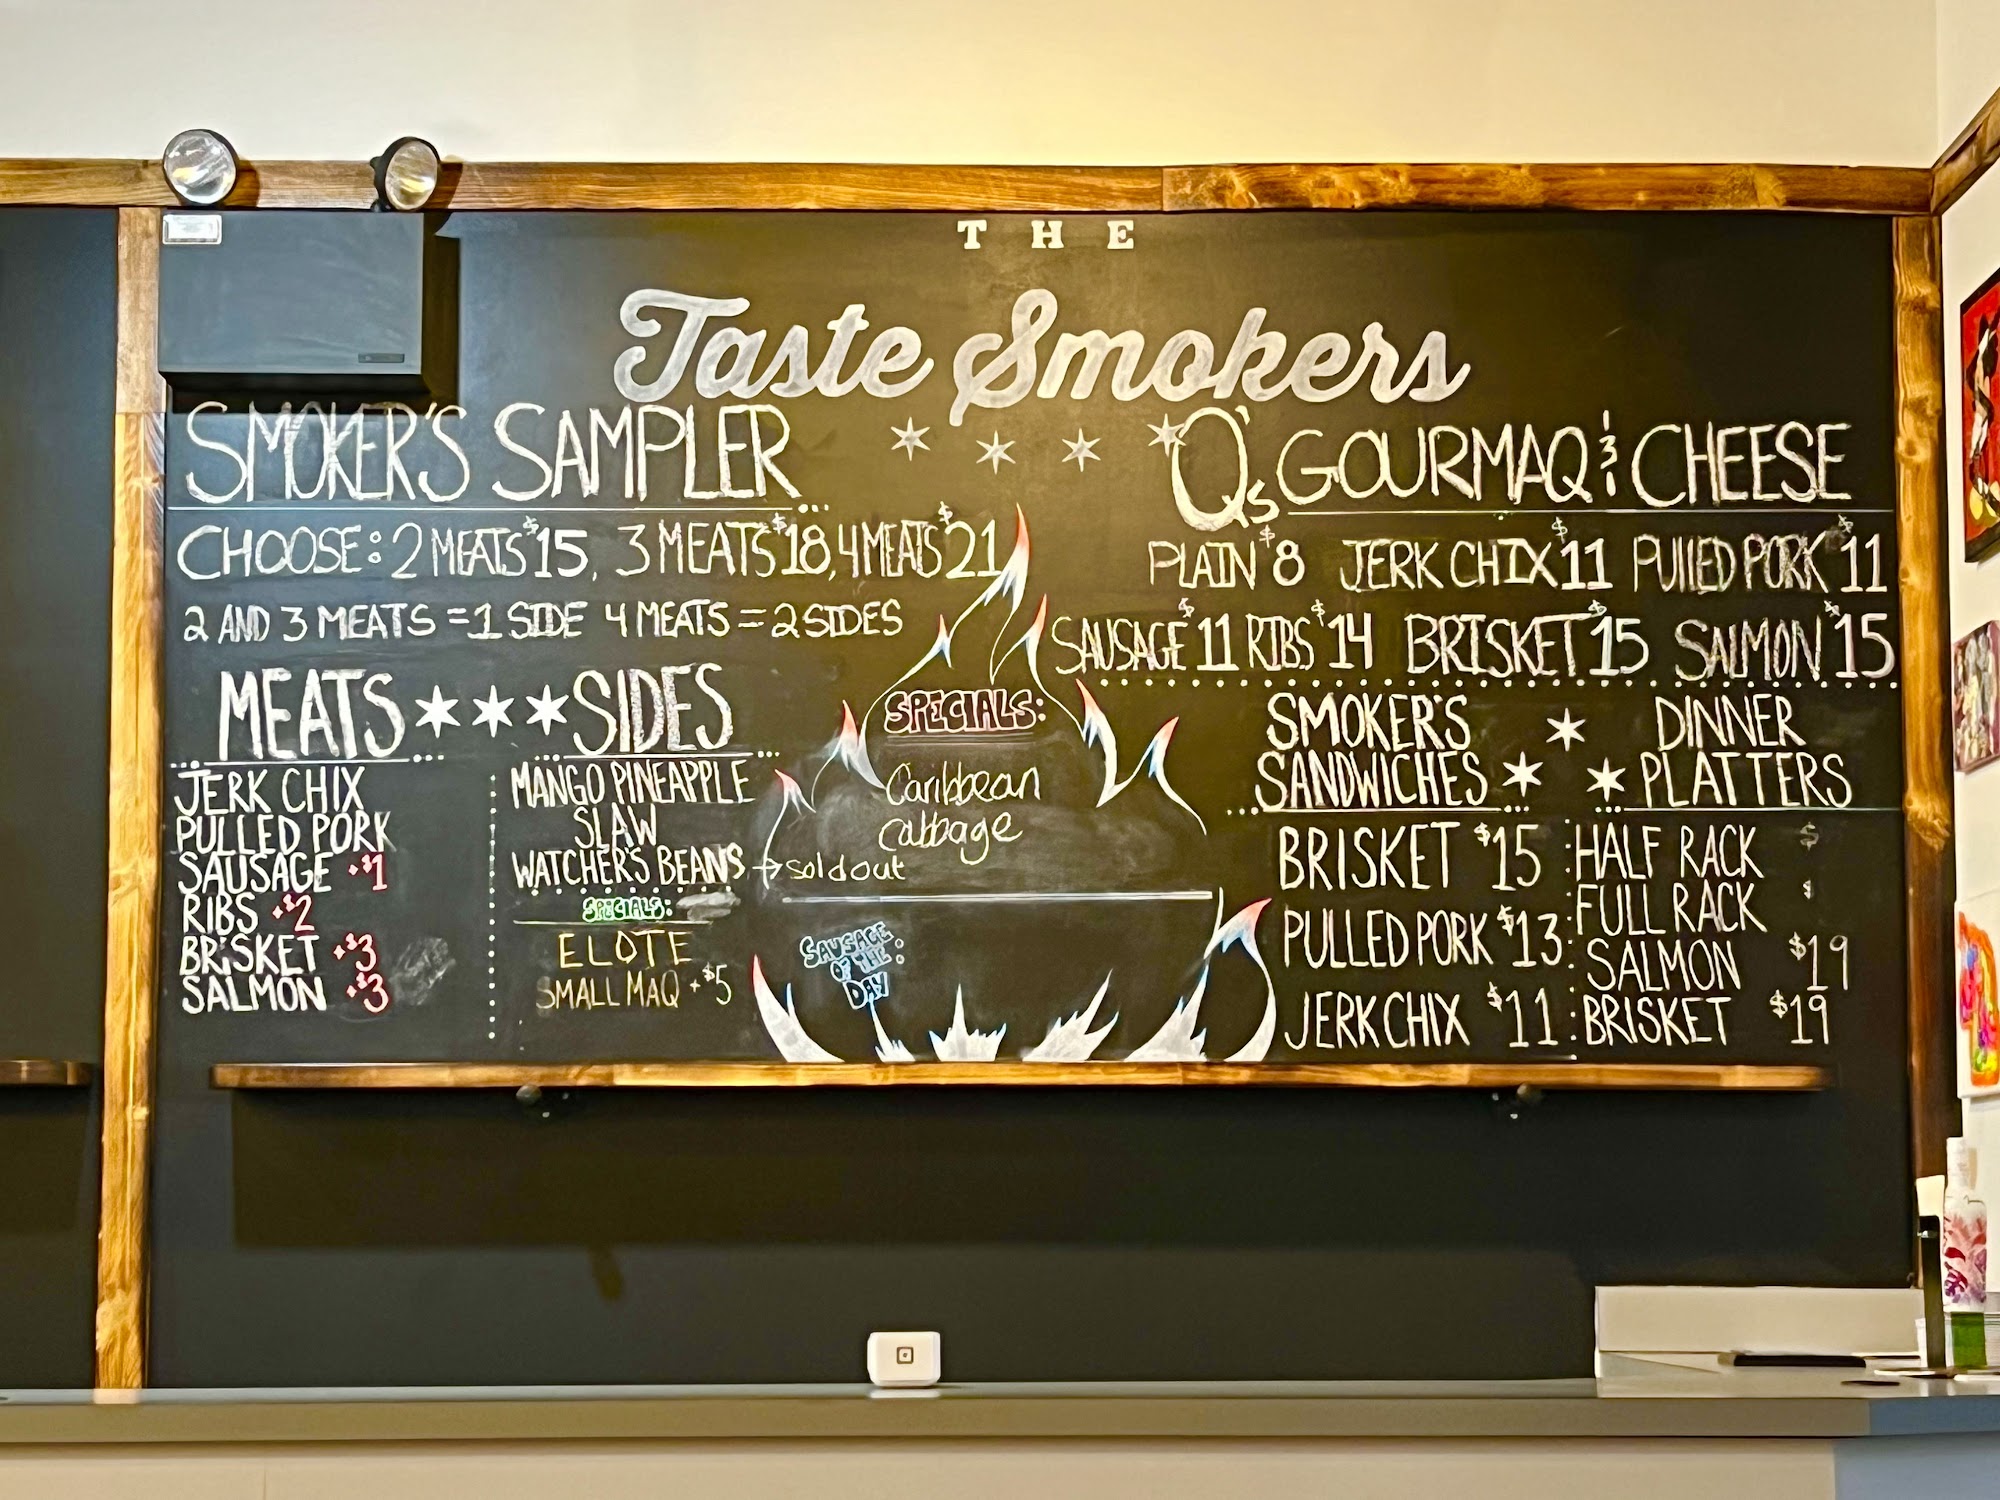 THE
Taste Smokers
SMOKER'S SAMPLER
CHOOSE: 2 MEATS $15, 3 MEATS $18, 4 MEATS $21
2 AND 3 MEATS = 1 SIDE 4 MEATS = 2 SIDES
MEATS
JERK CHIX
PULLED PORK
SAUSAGE +$1
RIBS +$2
BRISKET +$3
SALMON +$3
SIDES
MANGO PINEAPPLE
SLAW
WATCHER'S BEANS → sold out
SPECIALS:
ELOTE
SMALL MAQ +$5
SPECIALS:
Caribbean
cabbage
SAUSAGE
OF THE
DAY:
Q's GOURMAQ & CHEESE
PLAIN $8 JERK CHIX $11 PULLED PORK $11
SAUSAGE $11 RIBS $14 BRISKET $15 SALMON $15
SMOKER'S
SANDWICHES
BRISKET $15
PULLED PORK $13
JERK CHIX $11
DINNER
PLATTERS
HALF RACK $
FULL RACK $
SALMON $19
BRISKET $19